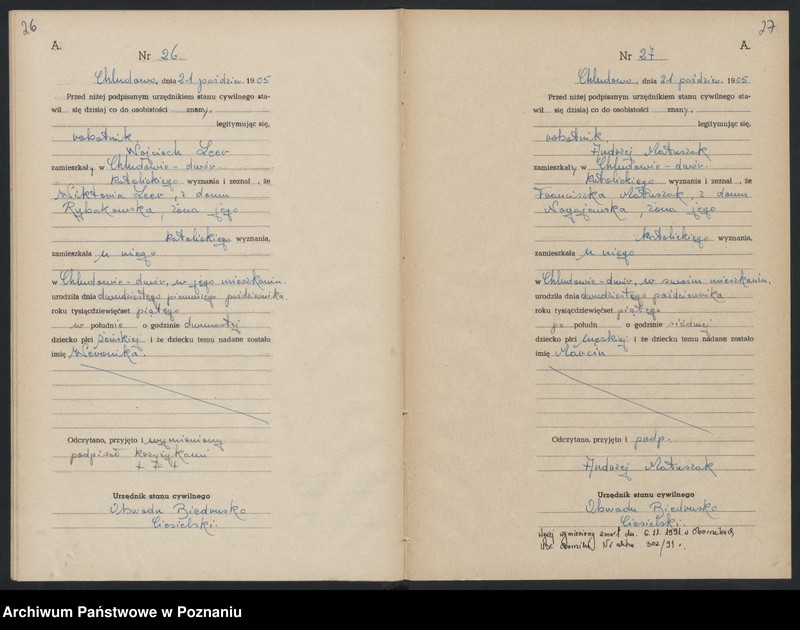 26
A.
Nr 26.
Chludowo, dnia 21 paździer. 1905
Przed niżej podpisanym urzędnikiem stanu cywilnego sta-
wił się dzisiaj co do osobistości znany,
legitymując się,
robotnik
Wojciech Leer
zamieszkały w Chludowie - dwór
katolickiego wyznania i zeznał, że
Wiktoria Leer, z domu
Rybakowska, żona jego
katolickiego wyznania,
zamieszkała u niego
w Chludowie - dwór, w jego mieszkaniu.
urodziła dnia dwudziestego pierwszego października
roku tysiącdziewięćset piątego
w południe o godzinie dwunastej
dziecko płci żeńskiej i że dziecku temu nadane zostało
imię Weronika.
Odczytano, przyjęto i wymieniony
podpisał krzyżykami
+ + +
Urzędnik stanu cywilnego
Obwodu Biedrusko
Ciesielski.
27
A.
Nr 27
Chludowo, dnia 21 paździer. 1905
Przed niżej podpisanym urzędnikiem stanu cywilnego sta-
wił się dzisiaj co do osobistości znany,
legitymując się,
robotnik
Andrzej Matuszak
zamieszkały w Chludowie - dwór.
katolickiego wyznania i zeznał, że
Franciszka Matuszak, z domu
żona jego
katolickiego wyznania,
zamieszkała u niego
w Chludowie - dwór, w swoim mieszkaniu,
urodziła dnia dwudziestego października
roku tysiącdziewięćset piątego
po połudn o godzinie siódmej
dziecko płci męskiej i że dziecku temu nadane zostało
imię Marcin
Odczytano, przyjęto i podp.
Andrzej Matuszak
Urzędnik stanu cywilnego
Obwodu Biedrusko
Ciesielski.
Wyżej wymieniony zmarł dn. 6.11.1991 w Obornikach
USC Oborniki Nr aktu 302/91 r.
Archiwum Państwowe w Poznaniu